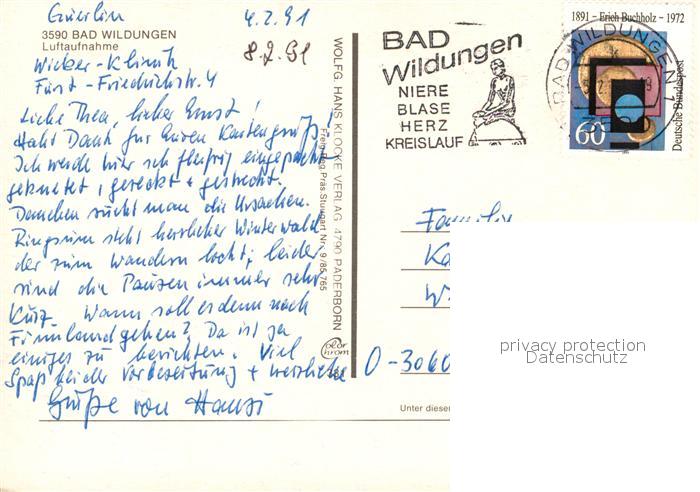 4.2.91
8.2.91
3590 BAD WILDUNGEN
Luftaufnahme
Wicker-Klinik
Fürst-Friedrichstr. 4
Liebe Thea, lieber Ernst!
Habt Dank für Euren Kartengruß!
Ich werde hier sehr fleißig eingepackt
geknetet, gereckt + gestreckt.
Daneben sucht man die Ursachen.
Ringsum steht herrlicher Winterwald
der zum Wandern lockt; leider
sind die Pausen immer sehr
kurz. Wann soll es denn nach
Finnland gehen? Da ist ja
einiges zu berichten. Viel
Spaß bei der Vorbereitung + herzliche
Grüße von Hansi
WOLFG. HANS KLOCKE VERLAG 4790 PADERBORN
Freig. Reg. Präs Stuttgart Nr. 9/85765
color
chrom
BAD
Wildungen
NIERE
BLASE
HERZ
KREISLAUF
BAD WILDUNGEN 1
1891 – Erich Buchholz – 1972
Deutsche Bundespost
60
Familie
O-3060
Unter diesem
privacy protection
Datenschutz